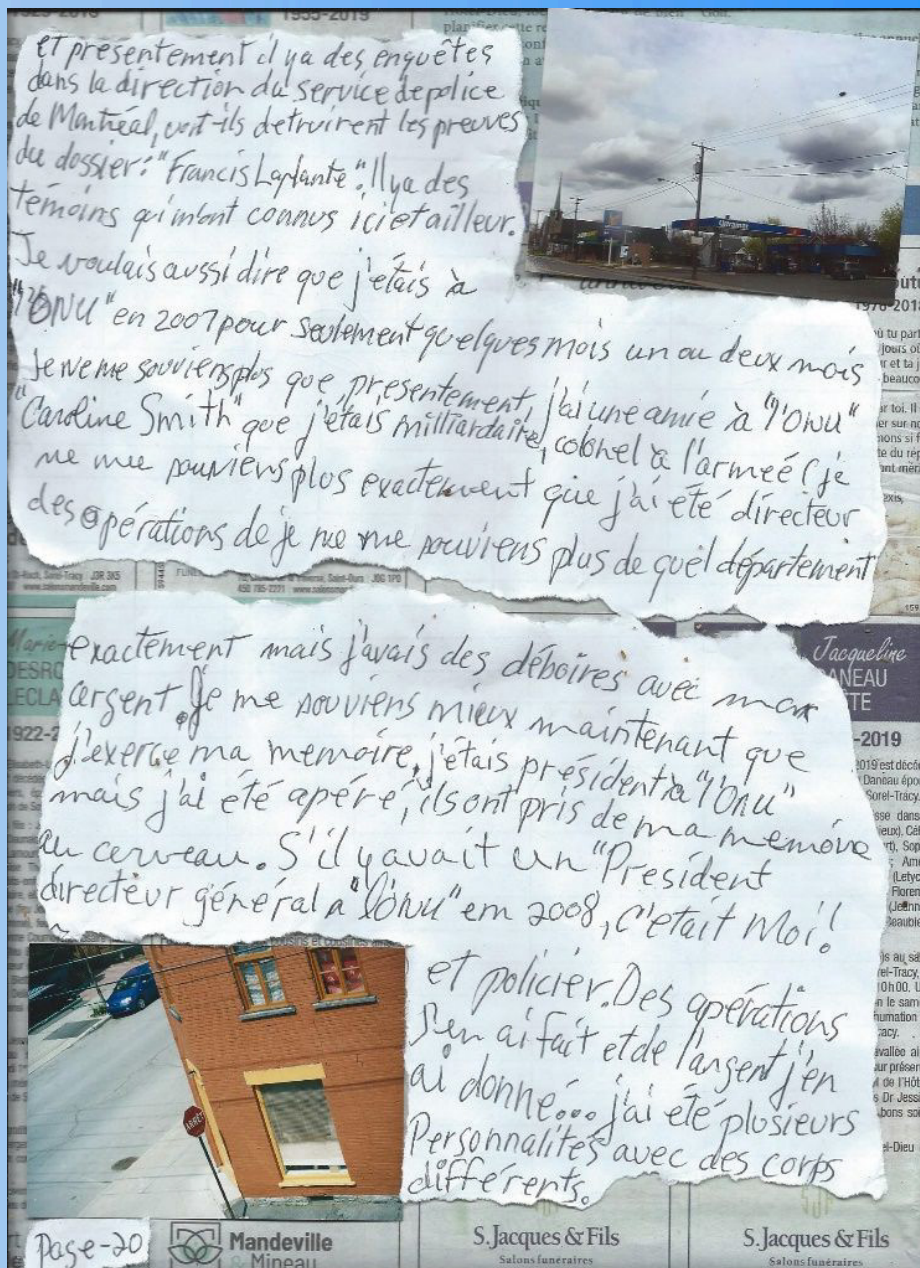 1955-2019
planifier cette re
et presentement il ya des enquêtes
dans la direction du service de police
de Montréal, vont-ils detruirent les preuves
du dossier: "Francis Laplante". Il ya des
témoins qui m'ont connus ici et ailleur.
Je voulais aussi dire que j'étais à
"l'ONU" en 2007 pour seulement quelques mois un ou deux mois
Je ne me souviens plus que, presentement, j'ai une amie à "l'Onu"
"Caroline Smith" que j'étais milliardaire, colonel à l'armeé (je
ne me souviens plus exactement que j'ai été directeur
des opérations de je ne me souviens plus de quel département
Sorel-Tracy J3R 3K5
www.salonsmandeville.com
Saint-Ours J0G 1P0
450 785-2271
exactement mais j'avais des déboires avec mon
argent. Je me souviens mieux maintenant que
j'exerce ma memoire, j'étais président à "l'Onu"
mais j'ai été apéré, ils ont pris de ma memoire
au cerveau. S'il y avait un "Président
directeur général a "l'ONU" em 2008, c'était Moi!
et policier. Des apérations
j'en ai fait et de l'argent j'en
ai donné... j'ai été plusieurs
Personnalités avec des corps
différents.
Jacqueline
DANEAU
-2019
ARRÊT
Page-20
Mandeville
& Mineau
S. Jacques & Fils
Salons funéraires
S. Jacques & Fils
Salons funéraires